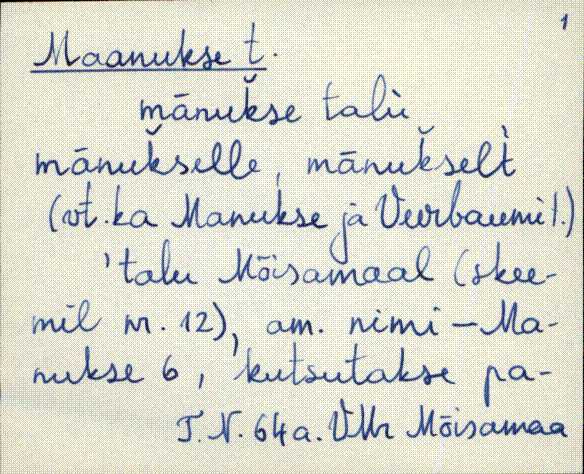 1
Maanukse t.
mānukše talù
mānukšelle, mānukšelt̀
(vt. ka Manukse ja Veerbaumi t.)
'talu Mõisamaal (skee-
mil nr. 12), am. nimi – Ma-
nukse 6, 'kutsutakse pa-
T. N. 64 a. VMr Mõisamaa